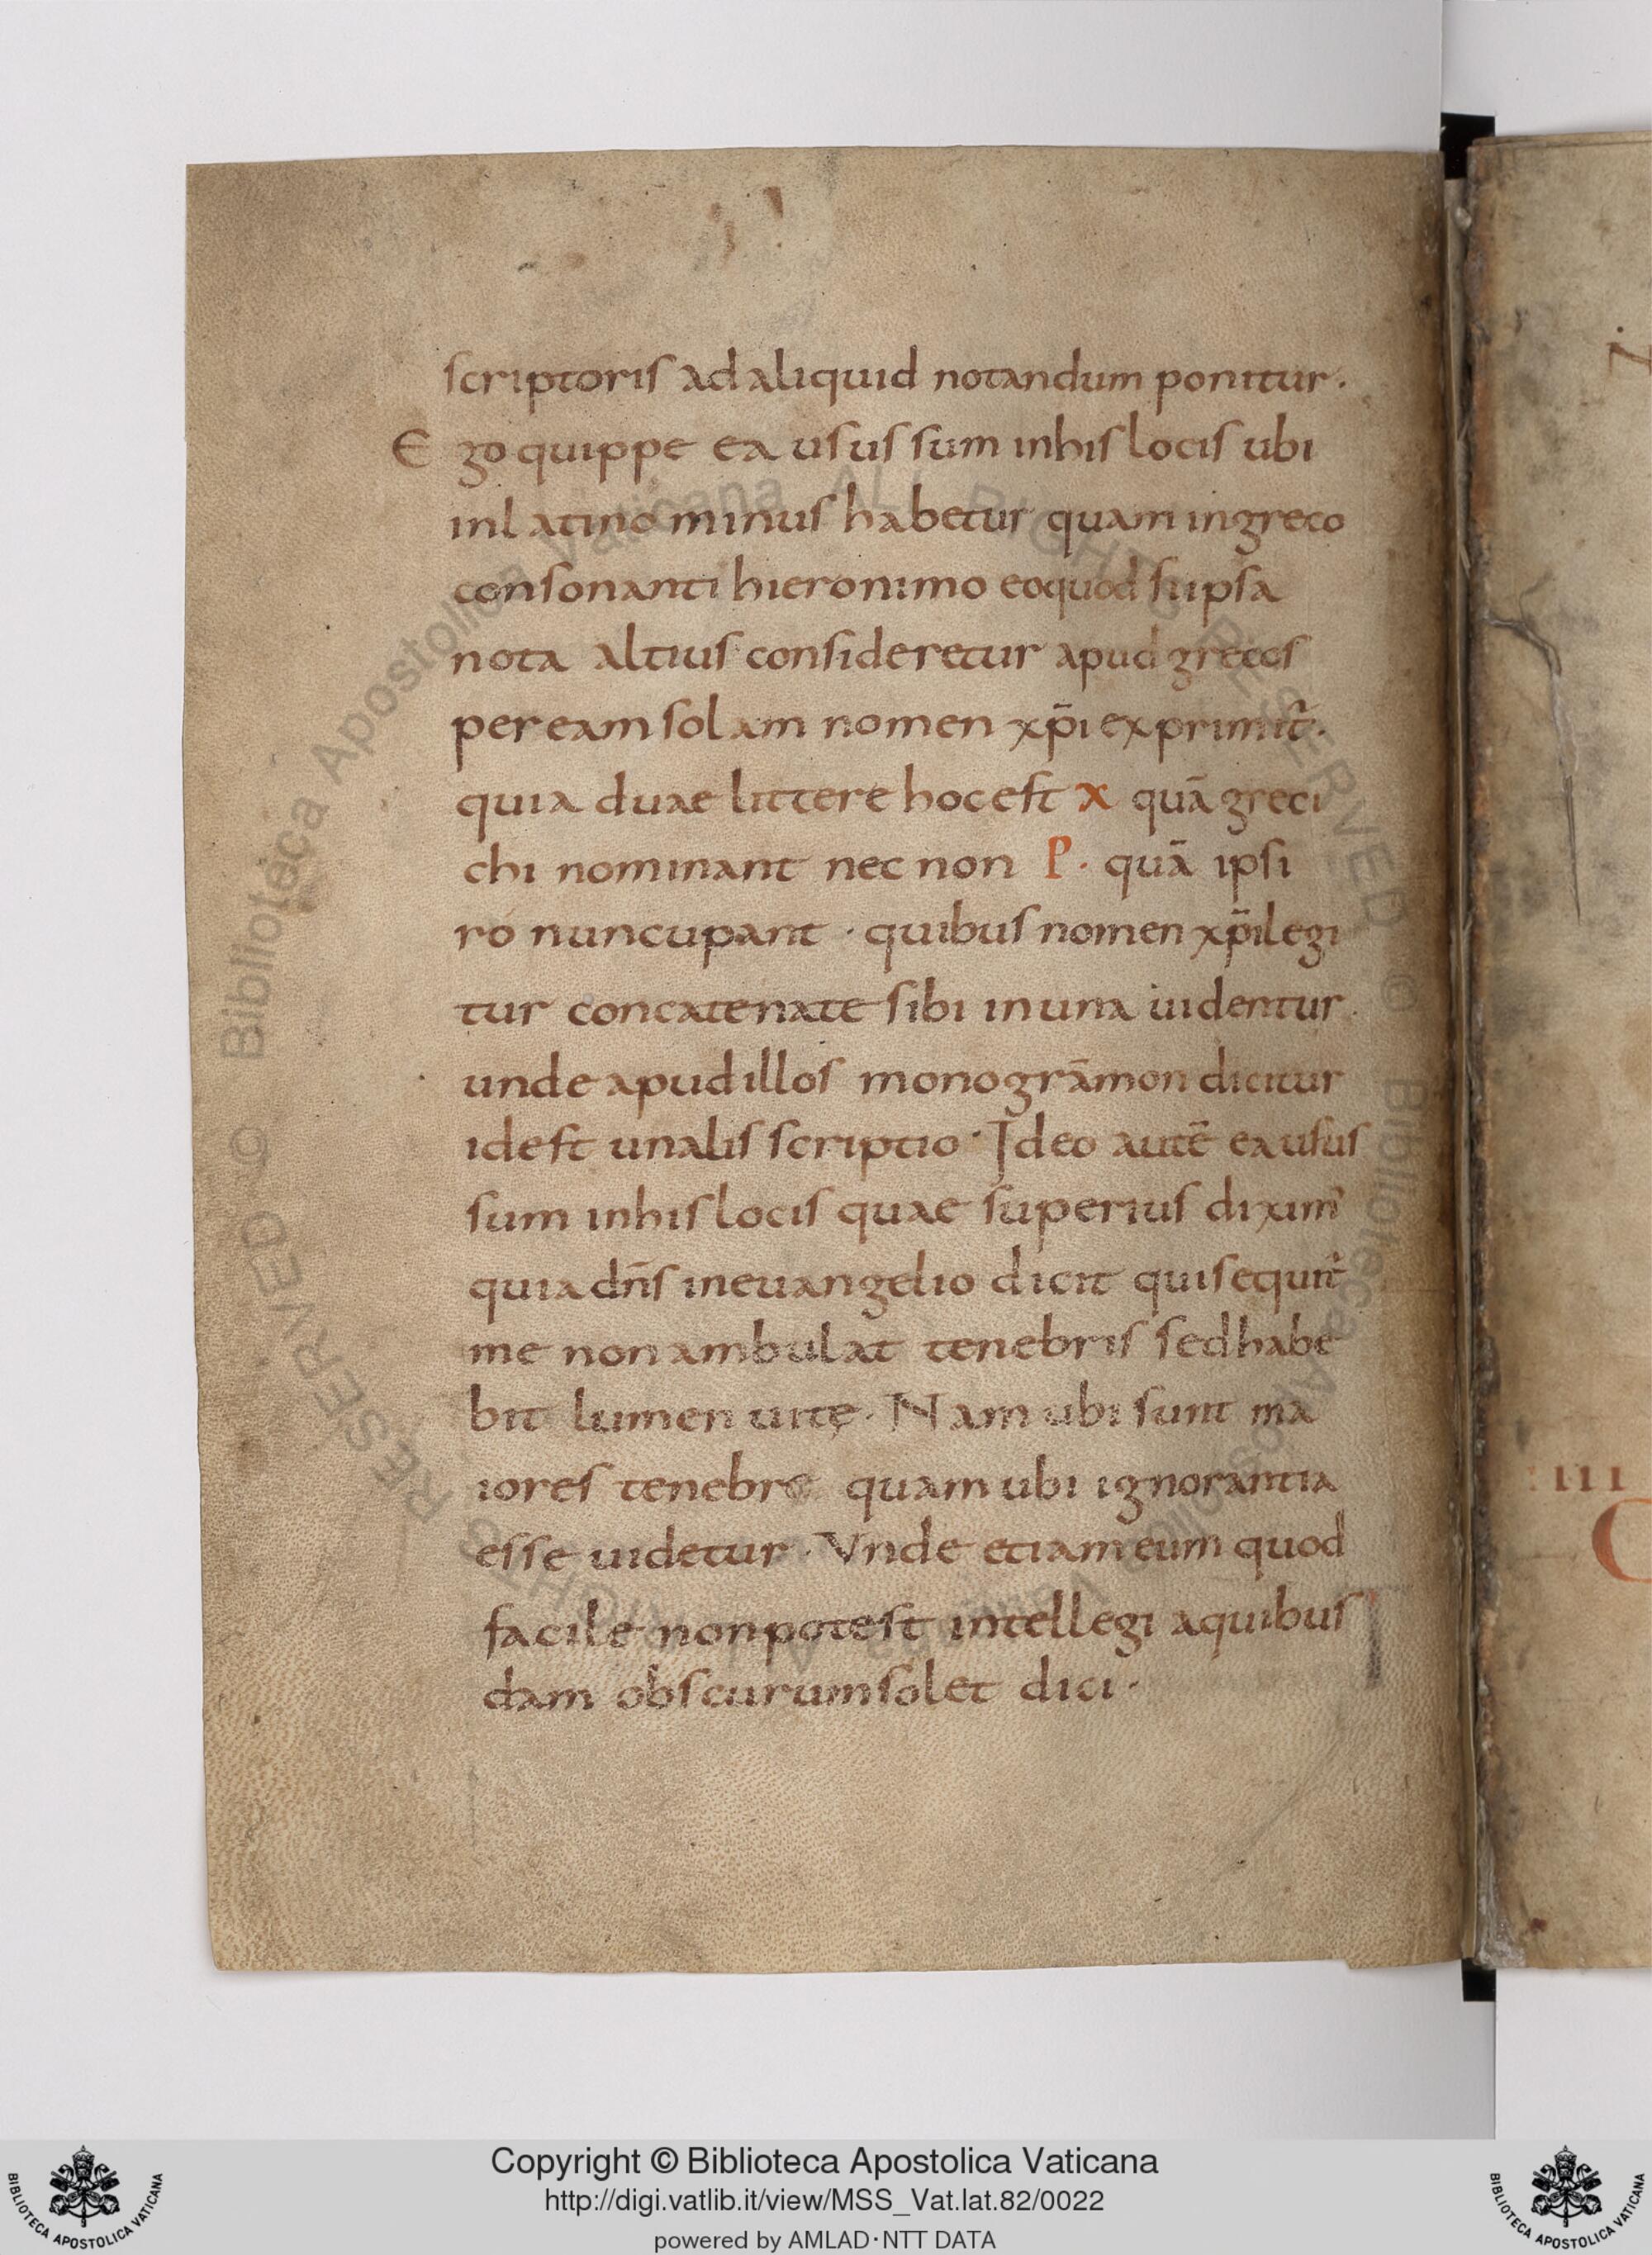 scriptoris ad aliquid notandum ponitur.
Ego quippe ea usus sum inhis locis ubi
inlatino minus habetur quam ingreco
consonanti hieronimo eoquod si ipsa
nota altius consideretur apud grecos
peream solam nomen xp̄i exprimit᷑.
quia duae littere hocest x quā greci
chi nominant nec non P. quā ipsi
ro nuncupant · quibus nomen xp̄i legi
tur concatenate sibi inuna uidentur.
unde apud illos monogrāmon dicitur
idest unalis scriptio · Ideo autē ea usus
sum inhis locis quae superius diximʼ
quia dn̄s ineuangelio dicit quisequit᷑
me non ambulat tenebris sed habe
bit lumen uitę. Nam ubi sunt ma
iores tenebre quam ubi ignorantia
esse uidetur. Vnde etiam eum quod
facile nonpotest intellegi aquibus
dam obscurum solet dici.
Copyright © Biblioteca Apostolica Vaticana
http://digi.vatlib.it/view/MSS_Vat.lat.82/0022
powered by AMLAD·NTT DATA
BIBLIOTECA APOSTOLICA VATICANA
BIBLIOTECA APOSTOLICA VATICANA